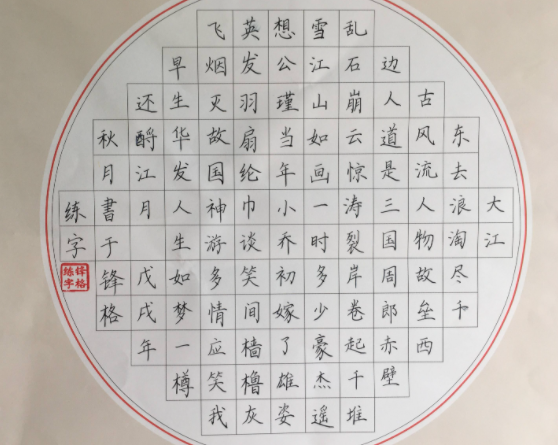 大江
东去浪淘尽千
古风流人物故垒西
边人道是三国周郎赤壁
乱石崩云惊涛裂岸卷起千堆
雪江山如画一时多少豪杰遥
想公瑾当年小乔初嫁了雄姿
英发羽扇纶巾谈笑间樯橹灰
飞烟灭故国神游多情应笑我
早生华发人生如梦一樽
还酹江月 戊戌年
秋月書于锋格
练字
锋格练字